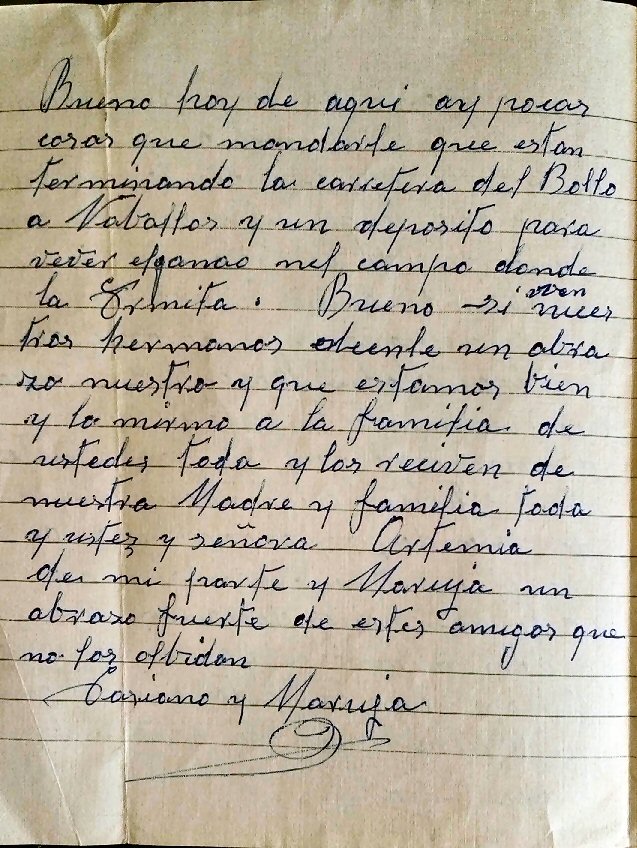 Bueno hoy de aqui ay pocas
cosas que mandarle que estan
terminando la carretera del Bollo
a Vaballos y un deposito para
vever el ganao nel campo donde
la Ermita. Bueno si ven nues
tros hermanos deenle un abra
zo nuestro y que estamos bien
y lo mismo a la familia de
ustedes toda y los reciven de
nuestra Madre y familia toda
y ustez y señora Artemia
de mi parte y Maruja un
abrazo fuerte de estes amigos que
no los olbidan
Casiano y Maruja